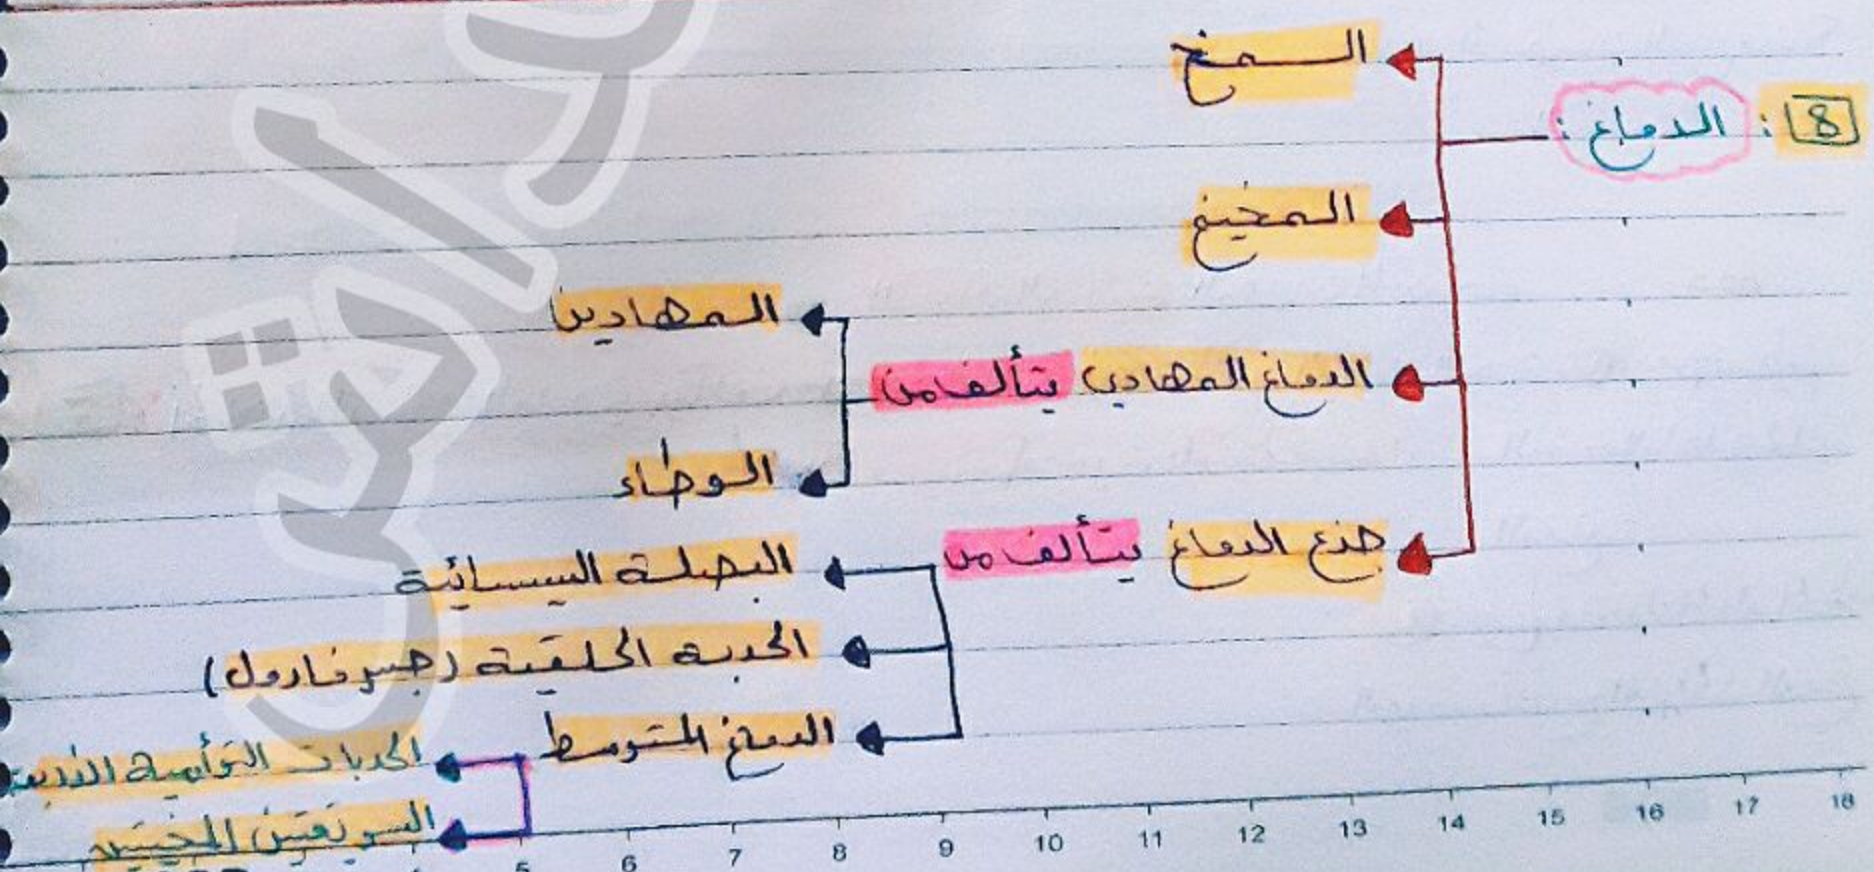 8 : الدماغ :
المخ
المخيخ
الدماغ المهادي يتألف من
المهادين
الوطاء
جذع الدماغ يتألف من
البصلة السيسائية
الحدبة الحلقية (جسر فارول)
الدماغ المتوسط
الحدبات التوأمية الأربعة
السويقتين المخيتين
5 6 7 8 9 10 11 12 13 14 15 16 17 18